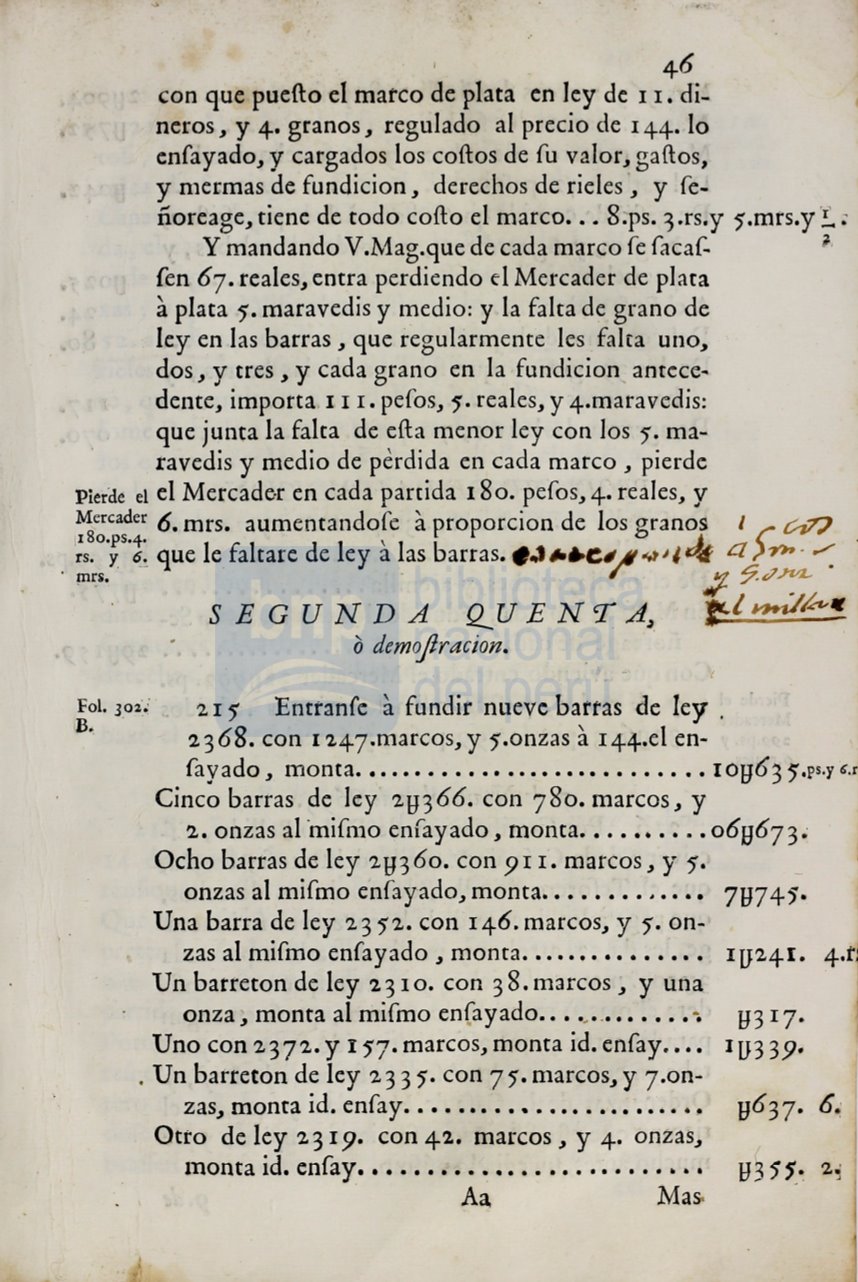 46
con que puesto el marco de plata en ley de 11. di-
neros, y 4. granos, regulado al precio de 144. lo
ensayado, y cargados los costos de su valor, gastos,
y mermas de fundicion, derechos de rieles, y se-
ñoreage, tiene de todo costo el marco... 8.ps. 3.rs.y 5.mrs.y 1/2.
Y mandando V.Mag.que de cada marco se sacas-
sen 67. reales, entra perdiendo el Mercader de plata
à plata 5. maravedis y medio: y la falta de grano de
ley en las barras, que regularmente les falta uno,
dos, y tres, y cada grano en la fundicion antece-
dente, importa 111. pesos, 5. reales, y 4.maravedis:
que junta la falta de esta menor ley con los 5. ma-
ravedis y medio de pèrdida en cada marco, pierde
el Mercader en cada partida 180. pesos, 4. reales, y
6. mrs. aumentandose à proporcion de los granos
que le faltare de ley à las barras.
Pierde el
Mercader
180.ps.4.
rs. y 6.
mrs.
biblioteca
nacional
del perú
SEGUNDA QUENTA,
ò demostracion.
Fol. 302.
B.
215 Entranse à fundir nueve barras de ley
2368. con 1247.marcos, y 5.onzas à 144.el en-
sayado, monta............................ 10U635.ps.y 6.r
Cinco barras de ley 2U366. con 780. marcos, y
2. onzas al mismo ensayado, monta.......... 06U673.
Ocho barras de ley 2U360. con 911. marcos, y 5.
onzas al mismo ensayado, monta............. 7U745.
Una barra de ley 2352. con 146. marcos, y 5. on-
zas al mismo ensayado, monta............... 1U241. 4.r
Un barreton de ley 2310. con 38.marcos, y una
onza, monta al mismo ensayado............. U317.
Uno con 2372. y 157. marcos, monta id. ensay.... 1U339.
Un barreton de ley 2335. con 75. marcos, y 7.on-
zas, monta id. ensay........................ U637. 6.
Otro de ley 2319. con 42. marcos, y 4. onzas,
monta id. ensay............................ U355. 2.
Aa Mas